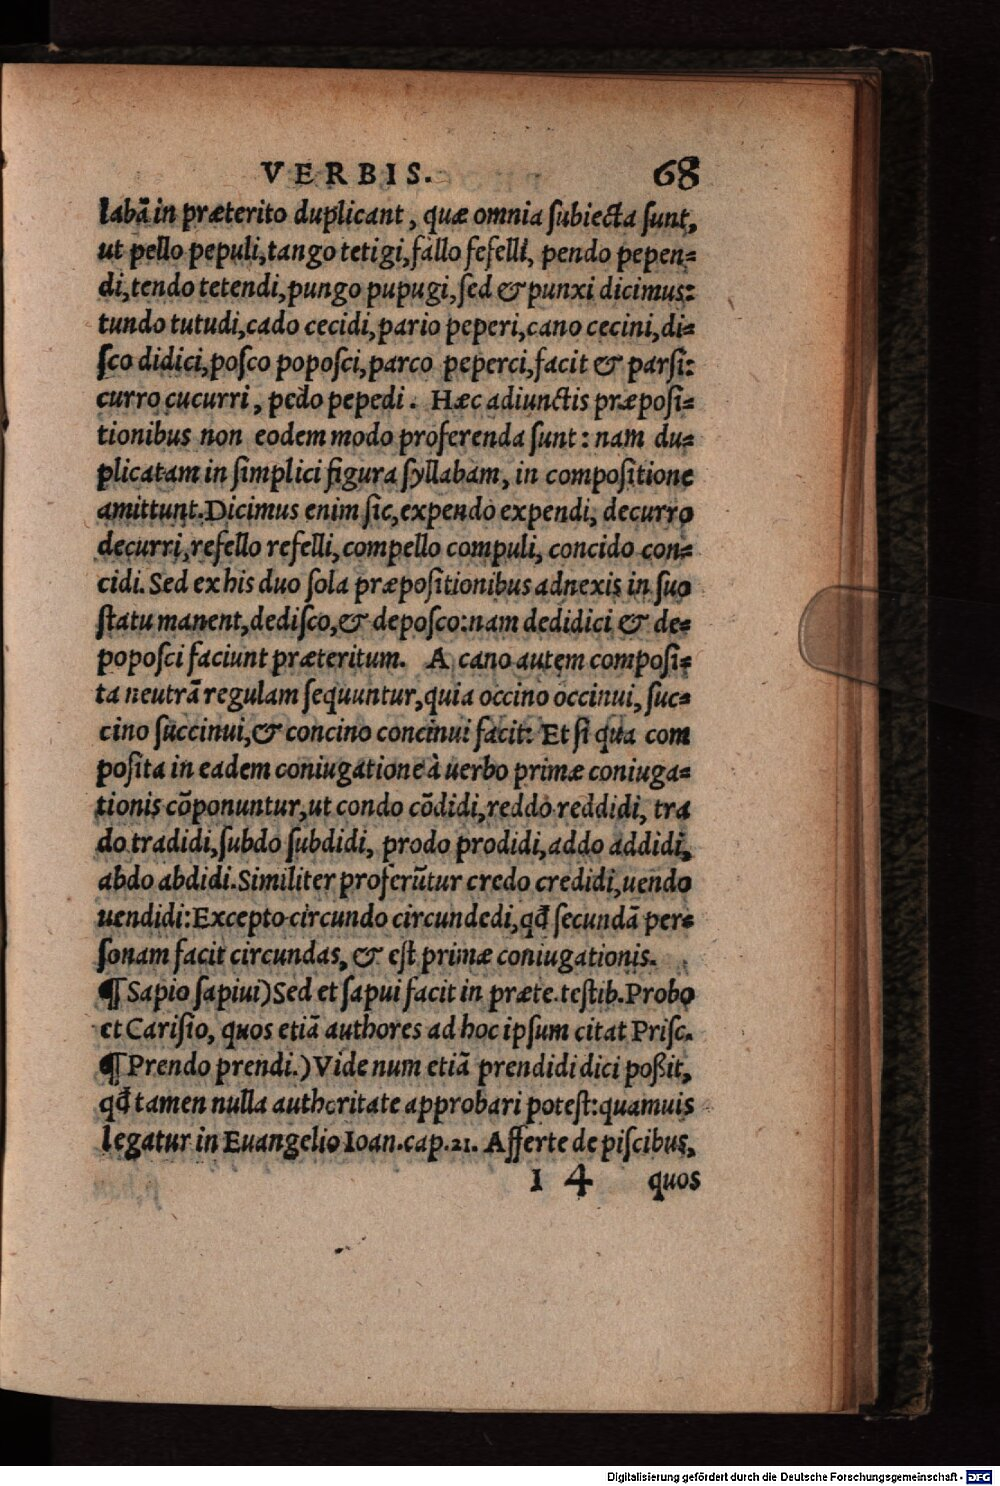 VERBIS. 68
labā in præterito duplicant, quæ omnia ſubiecta ſunt,
ut pello pepuli, tango tetigi, fallo fefelli, pendo pepen=
di, tendo tetendi, pungo pupugi, ſed & punxi dicimus:
tundo tutudi, cado cecidi, pario peperi, cano cecini, di=
ſco didici, poſco popoſci, parco peperci, facit & parſi:
curro cucurri, pedo pepedi. Hæc adiunctis præpoſi=
tionibus non eodem modo proferenda ſunt: nam du=
plicatam in ſimplici figura ſyllabam, in compoſitione
amittunt. Dicimus enim ſic, expendo expendi, decurro
decurri, refello refelli, compello compuli, concido con=
cidi. Sed ex his duo ſola præpoſitionibus adnexis in ſuo
ſtatu manent, dediſco, & depoſco: nam dedidici & de=
popoſci faciunt præteritum. A cano autem compoſi=
ta neutrā regulam ſequuntur, quia occino occinui, ſuc=
cino ſuccinui, & concino concinui facit: Et ſi qua com
poſita in eadem coniugatione à uerbo primæ coniuga=
tionis cōponuntur, ut condo cōdidi, reddo reddidi, tra
do tradidi, ſubdo ſubdidi, prodo prodidi, addo addidi,
abdo abdidi. Similiter proferūtur credo credidi, uendo
uendidi: Excepto circundo circundedi, qđ ſecundā per=
ſonam facit circundas, & eſt primæ coniugationis.
¶ Sapio ſapiui) Sed et ſapui facit in præte. teſtib. Probo
et Cariſio, quos etiā authores ad hoc ipſum citat Priſc.
¶ Prendo prendi.) Vide num etiā prendidi dici poßit,
qđ tamen nulla authoritate approbari poteſt: quamuis
legatur in Euangelio Ioan. cap. 21. Afferte de piſcibus,
I 4 quos
Digitalisierung gefördert durch die Deutsche Forschungsgemeinschaft - DFG